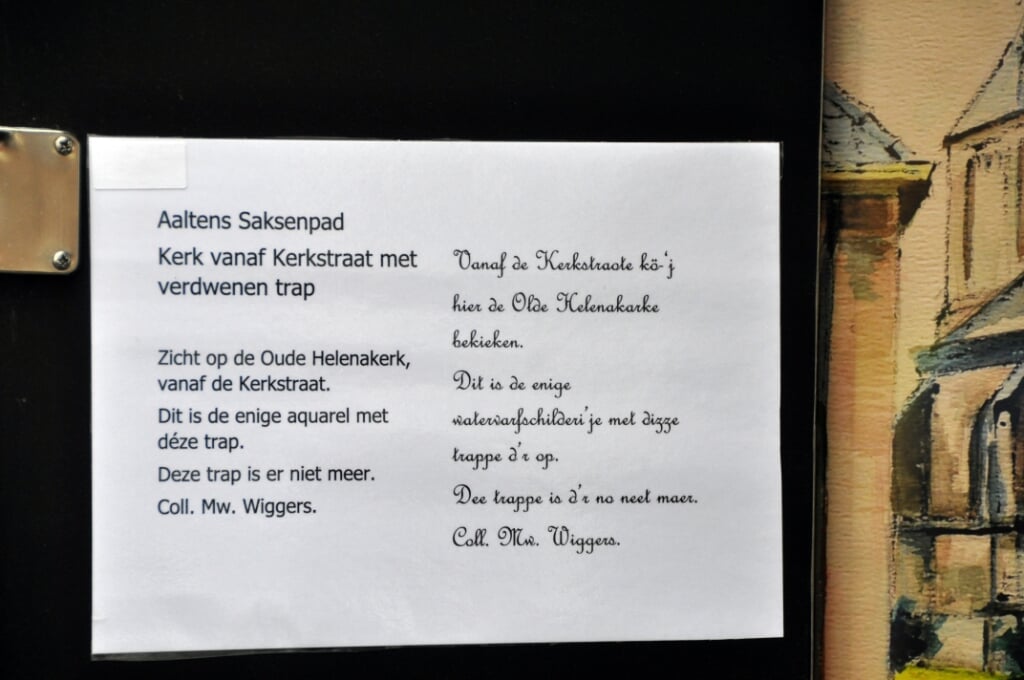 Aaltens Saksenpad
Kerk vanaf Kerkstraat met
verdwenen trap
Zicht op de Oude Helenakerk,
vanaf de Kerkstraat.
Dit is de enige aquarel met
déze trap.
Deze trap is er niet meer.
Coll. Mw. Wiggers.
Vanaf de Kerkstraote kö-'j
hier de Olde Helenakarke
bekieken.
Dit is de enige
watervarfschilderi'je met dizze
trappe d'r op.
Dee trappe is d'r no neet maer.
Coll. Mw. Wiggers.